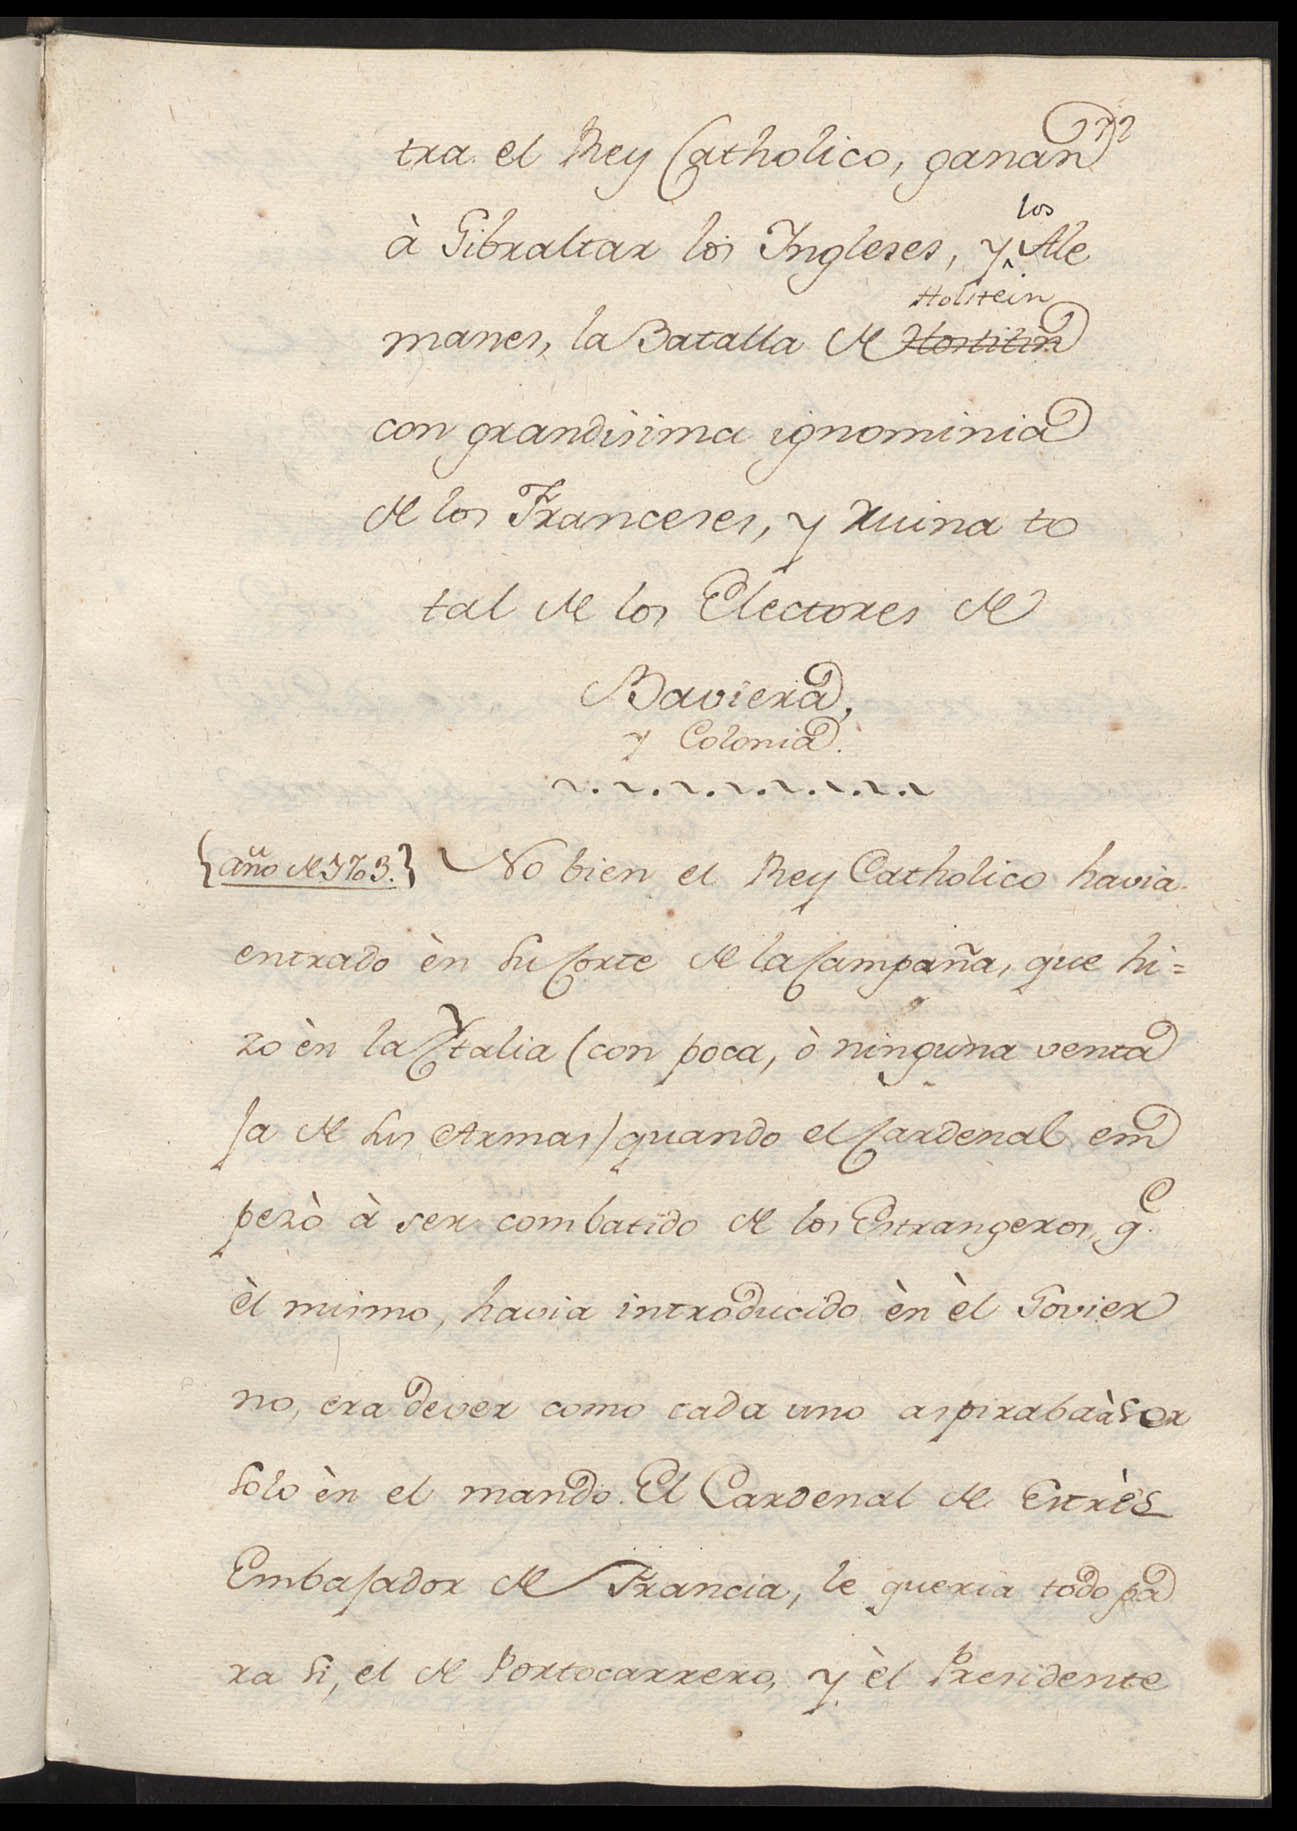 tra el Rey Catholico, ganan
à Gibraltar los Ingleses, y los Ale
manes, la Batalla de Holstein Hostitin
con grandisima ignominia
de los Franceses, y ruina to
tal de los Electores de
Baviera,
y Colonia.
{año de 1703.} No bien el Rey Catholico havia
entrado èn su Corte de la Campaña, que hi=
zo èn la Italia (con poca, ò ninguna venta
ja de sus Armas) quando el Cardenal em
pezò à ser combatido de los Estrangeros, q.e
èl mismo, havia introducido èn èl Govier
no, era dever como cada uno aspiraba à ser
solo èn el mando. El Cardenal de Etrès
Embajador de Francia, le queria todo pa
ra si, el de Portocarrero, y èl Presidente